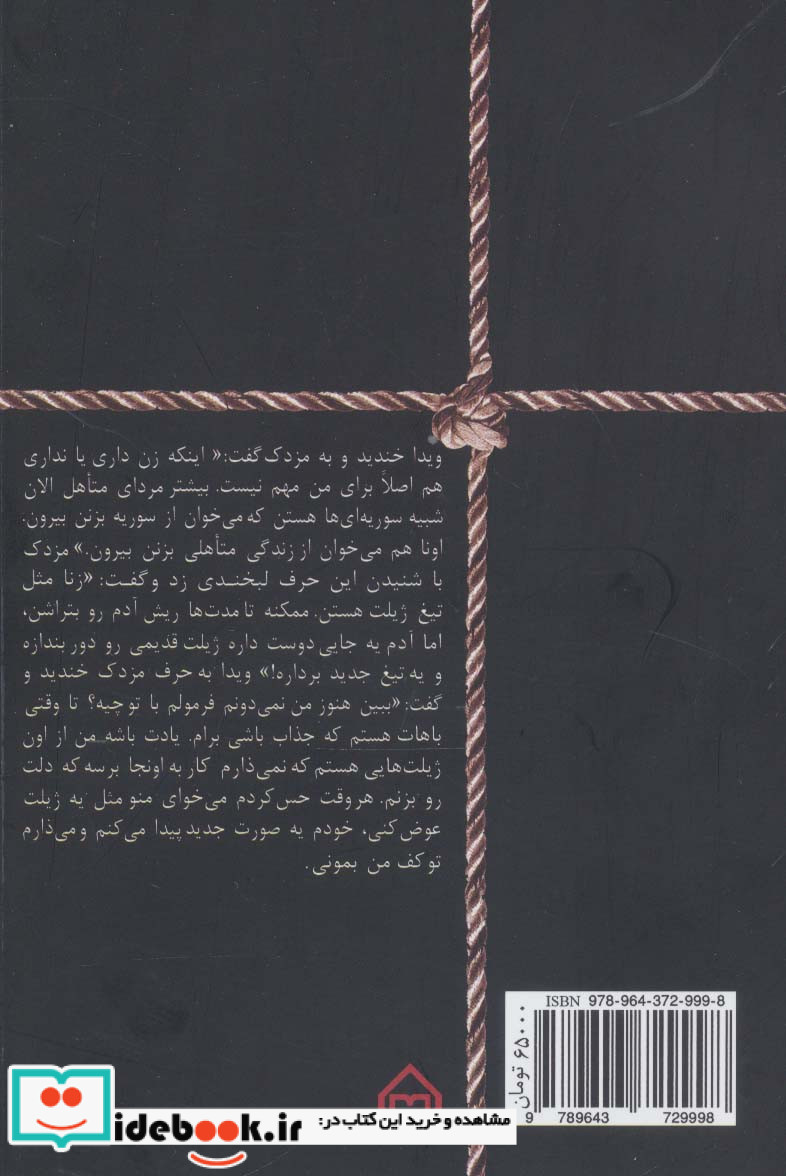 ویدا خندید و به مزدک گفت:« اینکه زن داری یا نداری
هم اصلاً برای من مهم نیست. بیشتر مردای متأهل الان
شبیه سوریه‌ای‌ها هستن که می‌خوان از سوریه بزنن بیرون.
اونا هم می‌خوان از زندگی متأهلی بزنن بیرون.» مزدک
با شنیدن این حرف لبخندی زد و گفت: «زنا مثل
تیغ ژیلت هستن. ممکنه تا مدت‌ها ریش آدم رو بتراشن،
اما آدم یه جایی دوست داره ژیلت قدیمی رو دور بندازه
و یه تیغ جدید برداره!» ویدا به حرف مزدک خندید و
گفت: «ببین هنوز من نمی‌دونم فرمولم با تو چیه؟ تا وقتی
باهات هستم که جذاب باشی برام. یادت باشه من از اون
ژیلت‌هایی هستم که نمی‌ذارم کار به اونجا برسه که دلت
رو بزنم. هر وقت حس کردم می‌خوای منو مثل یه ژیلت
عوض کنی، خودم یه صورت جدید پیدا می‌کنم و می‌ذارم
تو کف من بمونی.
ISBN 978-964-372-999-8
۶۵۰۰۰ تومان
9 789643 729998
مشاهده و خرید این کتاب در:
idebook.ir